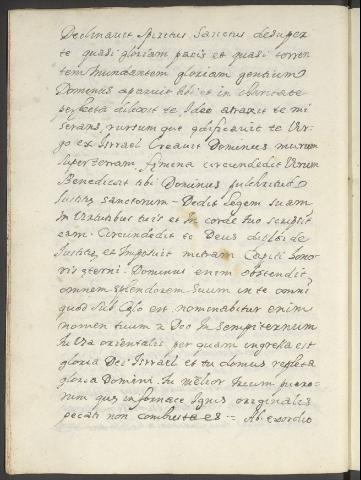 Declinavit spiritus Sanctus desuper
te quasi gloriam pacis et quasi torren
tem mundantem gloriam gentium
Dominus aparuit tibi et in charitate
perpetua dilexit te Ideo atraxit te mi
serans, rursum que ædificavit te Vir-
go ex Israel Creavit Dominus murum
super terram fæmina circundedit Virum
Benedicat tibi Dominus pulchritudo
Iustitiæ sanctorum - Dedit legem suam
in Virtutibus tuis et in corde tuo scripsit
eam - Circundedit te Deus diploide
Iustitiæ et Imposuit mitram Capiti hono
ris æterni - Dominus enim obstendit
omnem splendorem suum in te omni
quod sub Cælo est, nominabitur enim
nomen tuum a Deo in sempiternum
tu Via orientalis per quam ingressa est
gloria Dei Israel et tu domus repleta
gloria Domini, tu melior trium puero-
rum quæ in fornace Ignis originalis
pecati non combusta es = Ab exordio